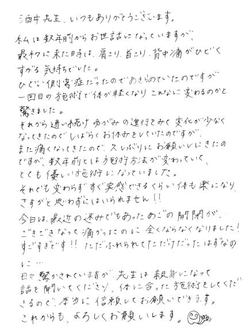 酒井先生、いつもありがとうございます。
私は数年前からお世話になっていますが、
最初に来た時は、肩こり、首こり、背中痛がひどく
すがる気持ちでした。
ひどい側弯症だったのであきらめていたのですが
一回目の施術で体が軽くなり こんなに変わるのかと
驚きました。
それから通い続け ゆがみの進行もみて 変化が少なく
なってきたのでしばらくお休みをしていたのですが、
また痛くなってきたので、久しぶりにお願いしに来たの
ですが、数年前とは施術方法が変わっていて、
とても優しい施術になっていました。
それでも変わらずすぐ実感できるくらい体も楽になり
さすがと思わずにはいられません!!
今日は、最近の悩みでもあったあごの開閉が、
ごきごきなって痛かったのに 全くならなくなりました!
すごすぎです!! ただふれられてただけだったはずなの
に…
日々驚かされていますが、先生は親身になって
話を聞いてくださり、体に合った施術をしてくださ
るので、本当に信頼してお願いできます。
これからも、よろしくお願いします。